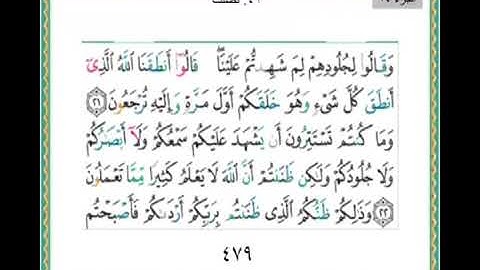 ٤١. فصلت
وَقَالُوا۟ لِجُلُودِهِمْ لِمَ شَهِدتُّمْ عَلَيْنَا ۖ قَالُوٓا۟ أَنطَقَنَا ٱللَّهُ ٱلَّذِىٓ
أَنطَقَ كُلَّ شَىْءٍ وَهُوَ خَلَقَكُمْ أَوَّلَ مَرَّةٍ وَإِلَيْهِ تُرْجَعُونَ ٢١
وَمَا كُنتُمْ تَسْتَتِرُونَ أَن يَشْهَدَ عَلَيْكُمْ سَمْعُكُمْ وَلَآ أَبْصَٰرُكُمْ
وَلَا جُلُودُكُمْ وَلَٰكِن ظَنَنتُمْ أَنَّ ٱللَّهَ لَا يَعْلَمُ كَثِيرًا مِّمَّا تَعْمَلُونَ
٢٢ وَذَٰلِكُمْ ظَنُّكُمُ ٱلَّذِى ظَنَنتُم بِرَبِّكُمْ أَرْدَىٰكُمْ فَأَصْبَحْتُم
٤٧٩